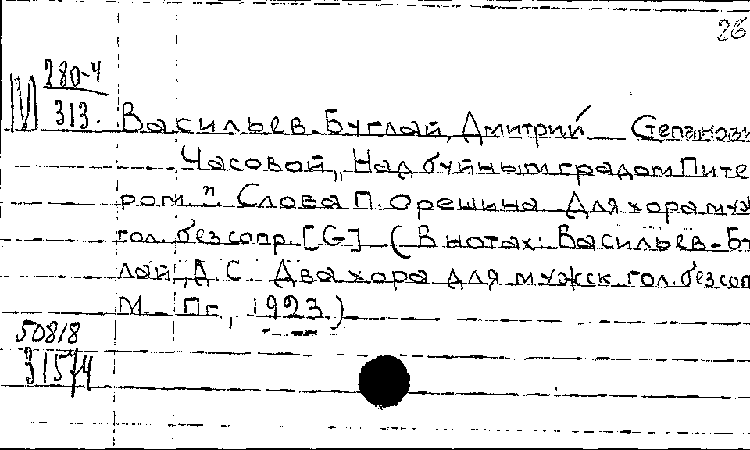 26
М 280-4
313.
Васильев-Буглай, Дмитрий Степанови
Часовой „Над буйным градом Пите
ром". Слова П. Орешина. Для хора муж
гол. без сопр. [G] (В нотах: Васильев-Бу
лай, Д. С. Два хора для мужск. гол. без соп
М.-Пг., 1923.)
50818
31574